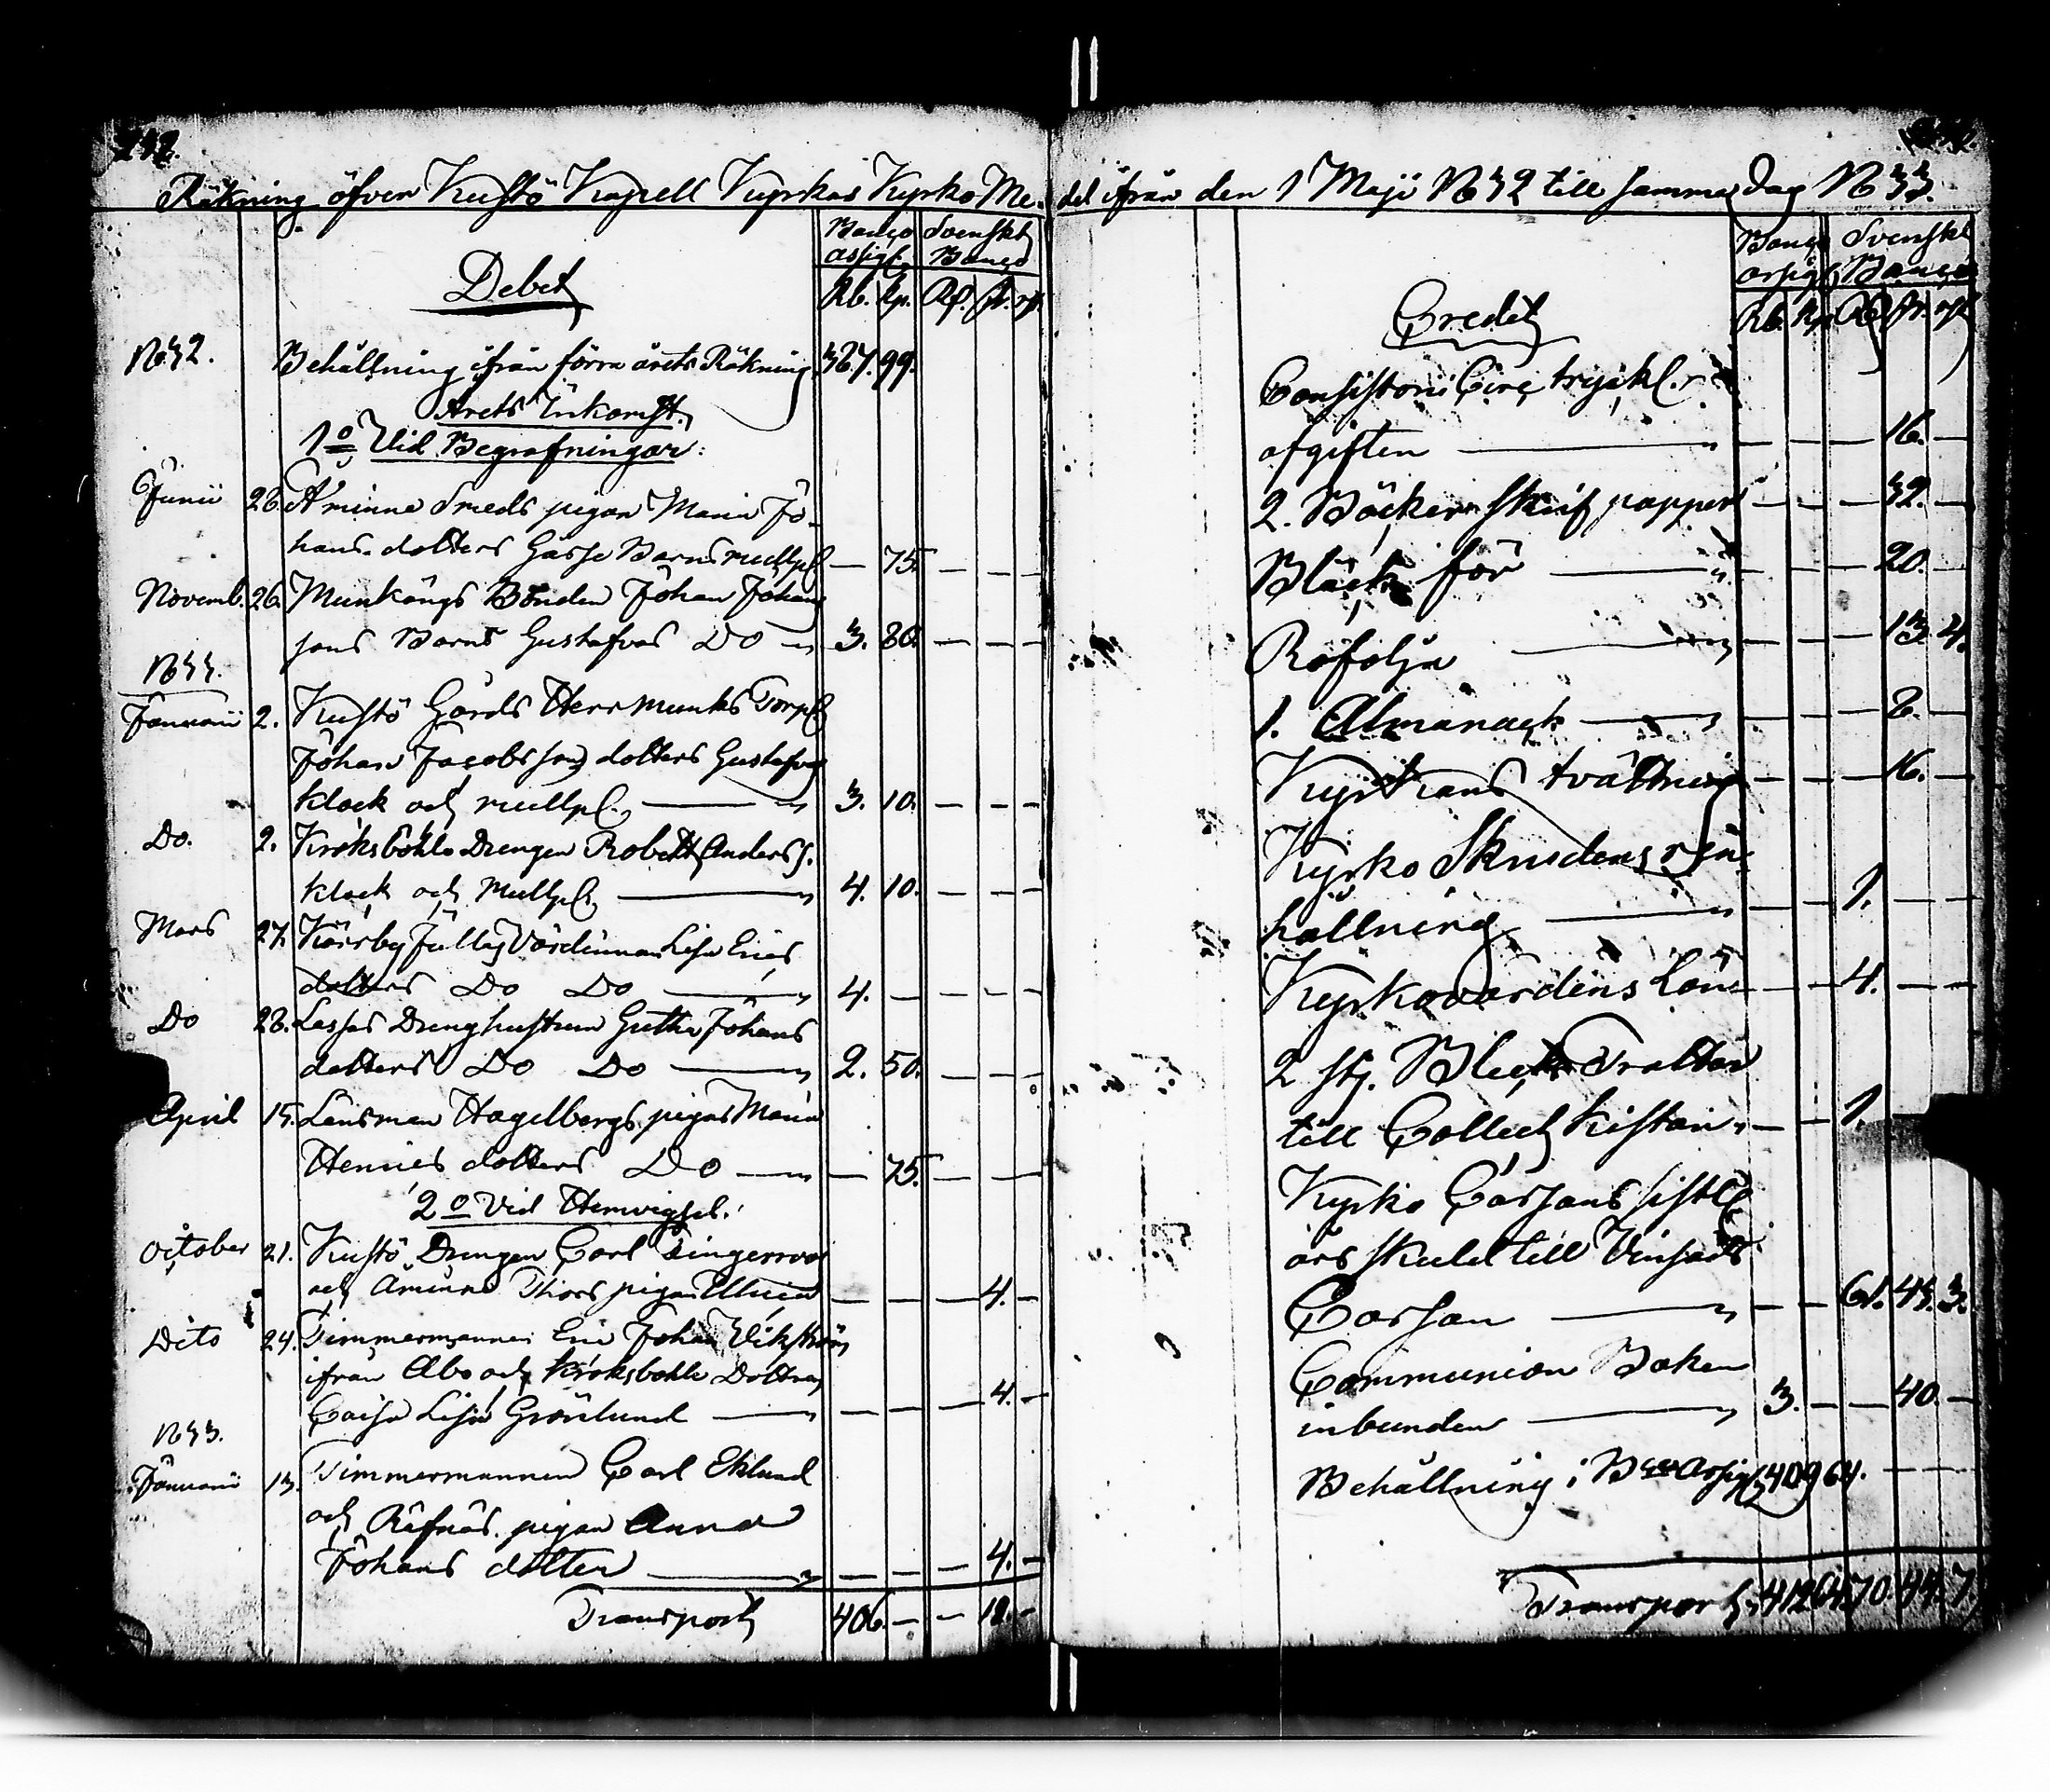 Räkning öfver Kustö Kapell Kyrkas Kyrko Me-
Banco Svenskt
assigt. Banco
Debet
Rb. Kp. Rd. sk. rst.
1832. Behållning ifrån förra årets Räkning 387. 99.
Årets Inkomst.
1o Vid Begrafningar:
Junii 28. Aminne Smeds pigan Maria Jo-
hans dotters Gåsse Barns mullpl. — 75. — — —
Novemb. 26. Munkängs Bonden Johan Johans
sons Barns Gustafvas Do 3. 80. — — —
1833.
Januarii 2. Kustö Gårds Herr Munks Torp.
Johan Jacobssons dotters Gustafvas
klock och mullpl. 3. 10. — — —
Do. 2. Kroksböhle Drengen Robert Anderss.
klock och Mullpl. 4. 10. — — —
Mars 27. Kärrby Värdinnan Lisa Erics
dotters Do Do 4. — — — —
Do 28. Lasses Dreng hustrun Johans
dotters Do Do 2. 50. — — —
April 15. Lensman Hagelbergs pigas Maria
Henrics dotters Do — 75. — — —
2o Vid Hemvigsel.
October 21. Kustö Drengen Carl
och Aminne Thors pigan Ulrica — — — 4. —
Dito 24. Timmermannen Eric Johan Vikström
ifrån Åbo och Kroksböhle Dottren
Caisa Lisa Grönlund — — — 4. —
1833.
Januarii 13. Timmermannen Carl Eklund
och Räfnäs pigan Anna
Johans dotter — — — 4. —
Transport 406. — — 12. —
del ifrån den 1 Maji 1832 till samma Dag 1833.
Banco Svenskt
assigt. Banco
Credit
Rb. Kp. Rd. sk. rst.
Consistorii Circ. tryckl.
afgiften — — — 16. —
2. Böcker Skrif papper — — — 32. —
Bläck för — — — 20. —
Rofolja — — — 13. 4.
1. Almanack — — — 8. —
Kyrkans tvättning — — — 16. —
Kyrko Skrudens ren
hållning — — 1. — —
Kyrkovärdens Lön — — 4. — —
2 st. Bleck Trattar
till Collect kistan — — 1. — —
Kyrko Cassans sistl.
års skuld till Vinsäds
Cassan — — 61. 43. 3.
Communion Boken
inbunden 3. — — 40. —
Behållning i Bco Assigt. 409 64. — —
Transport 412 64. 70. 44. 7.